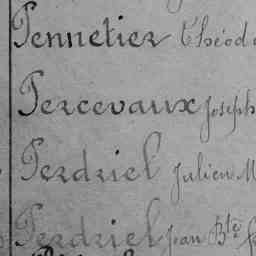 Pennetier Théod
Percevaux Joseph
Perdriel Julien M
Perdriel Jean Bte